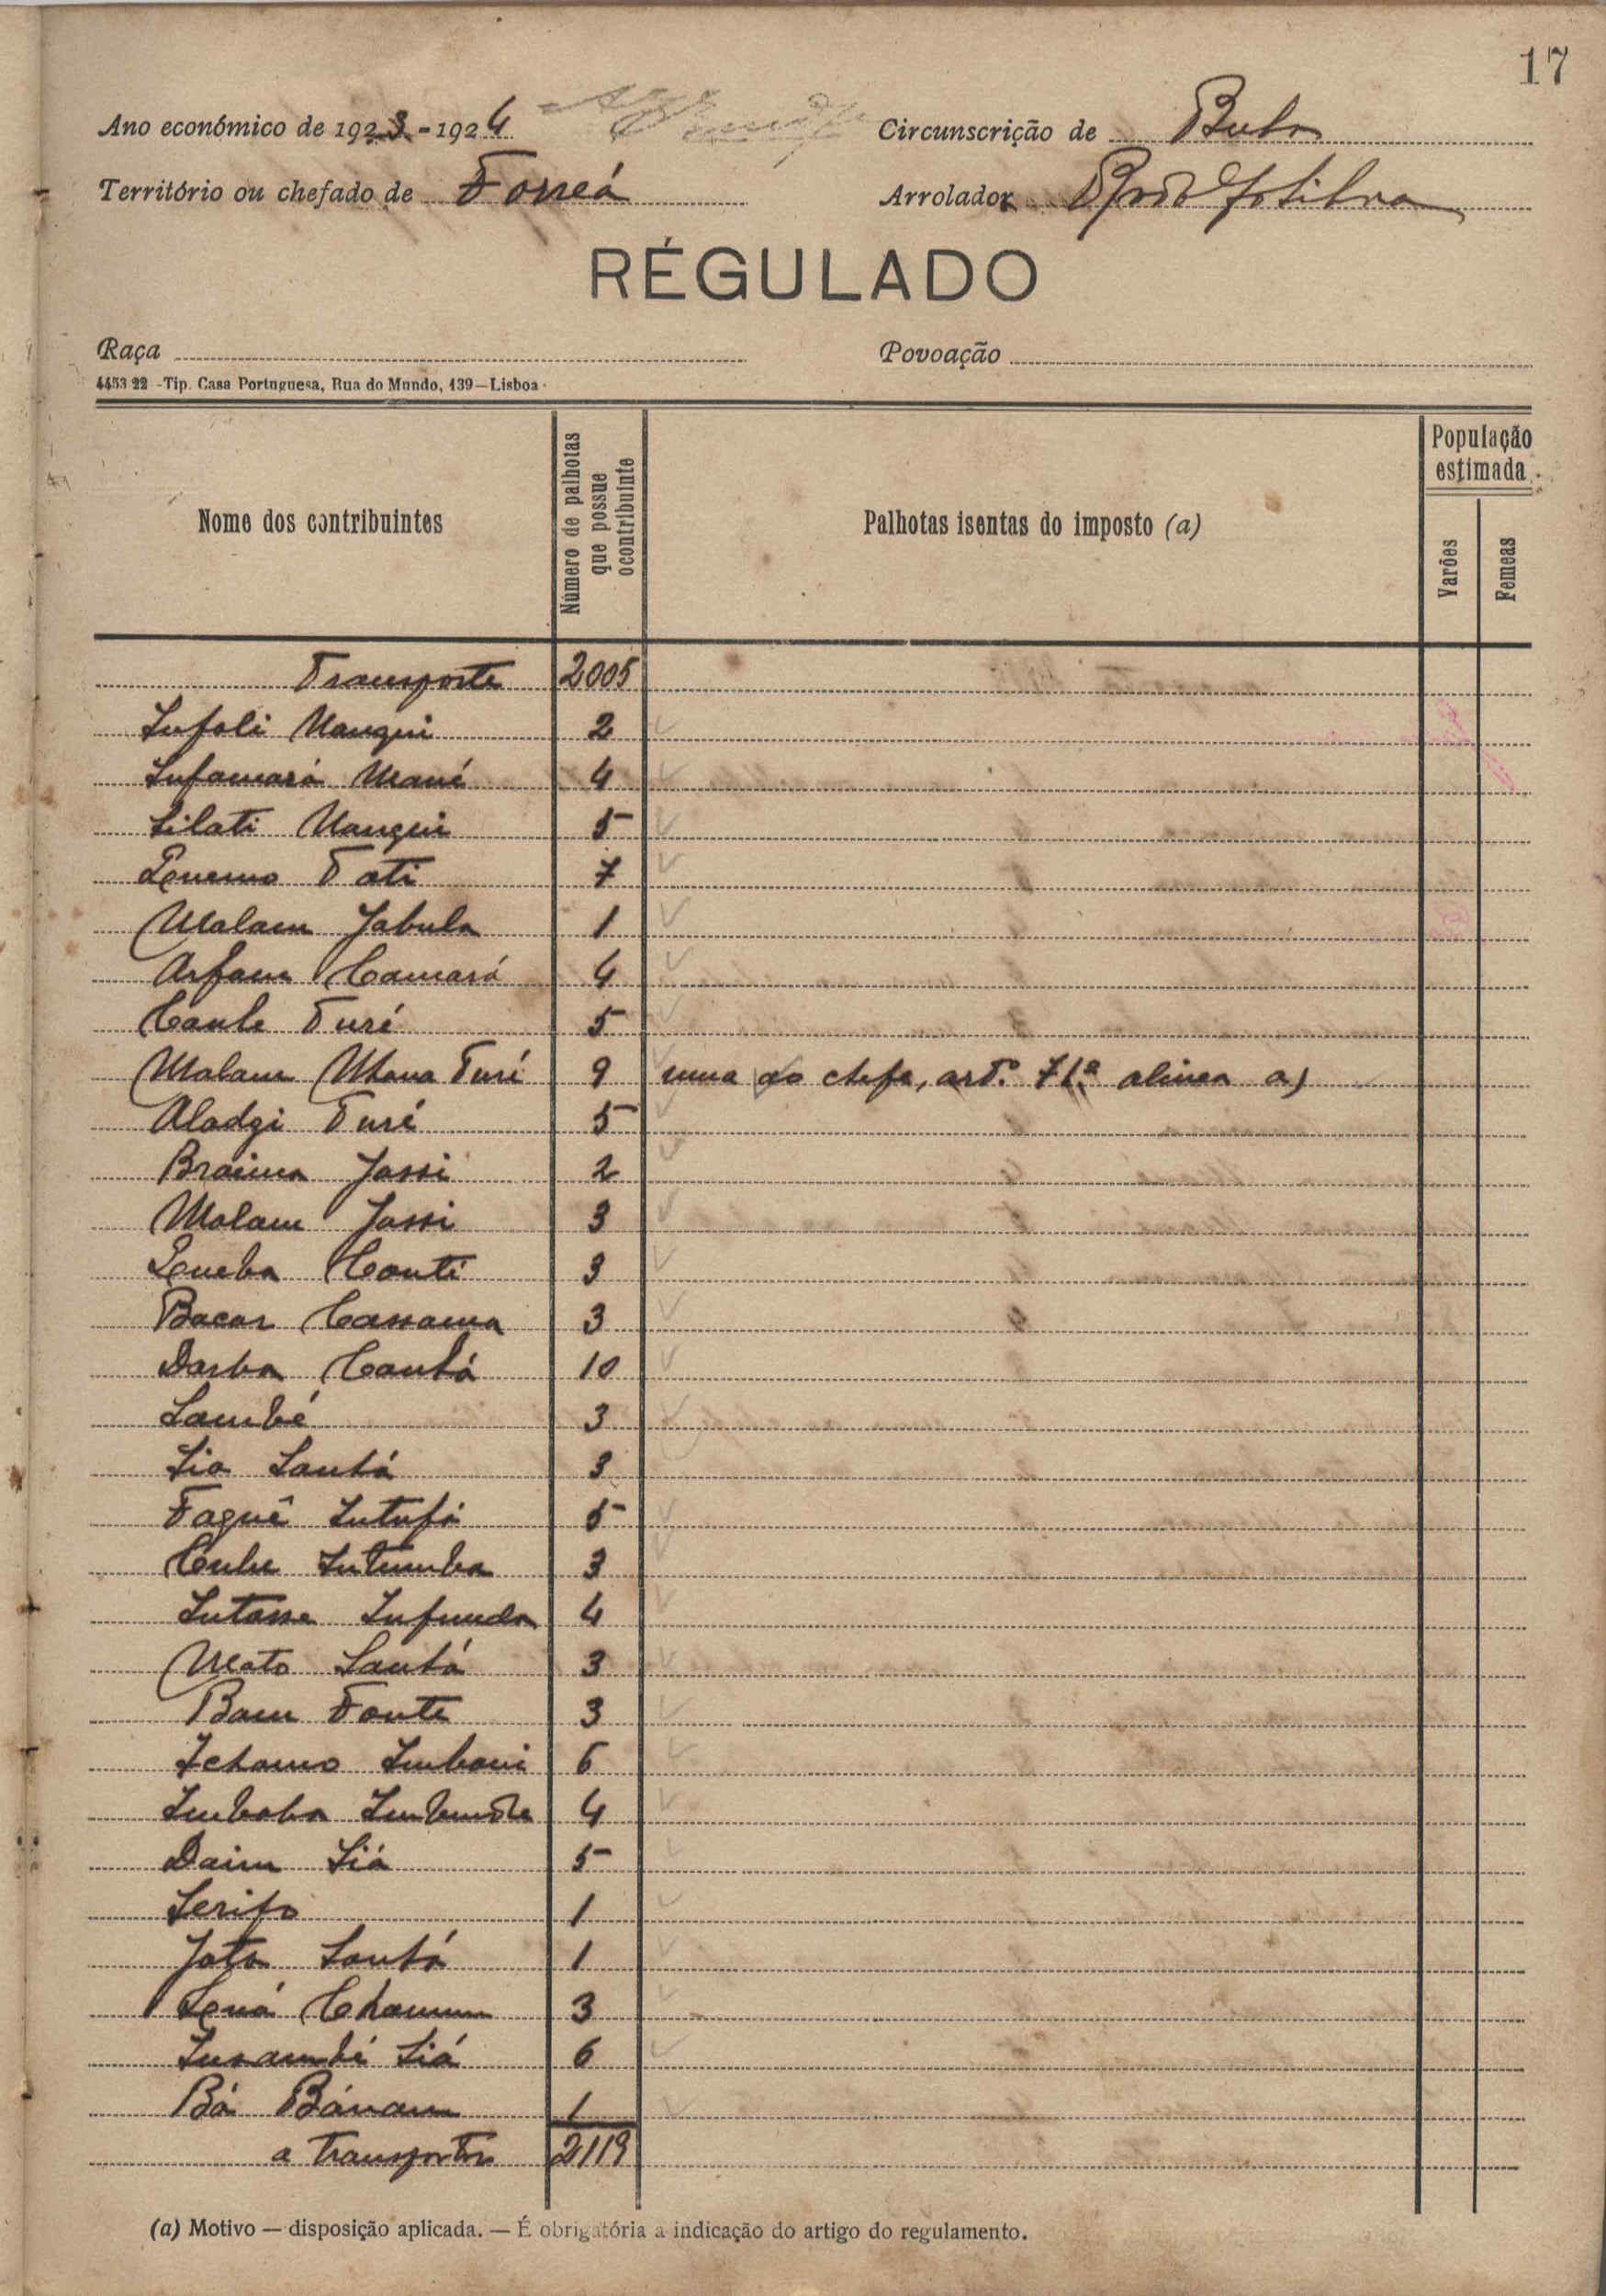 17
Ano económico de 1923-1924 Circunscrição de Buba
Território ou chefado de Forreá Arrolador Rodolfo Silva
RÉGULADO
Raça Povoação
4453 22 -Tip. Casa Portuguesa, Rua do Mundo, 139—Lisboa
Nome dos contribuintes
Número de palhotas que possue ocontribuinte
Palhotas isentas do imposto (a)
População estimada
Varões
Femeas
Transporte 2005
Sufoli Nanqui 2
Infamará Mané 4
Silati Nanqui 5
Quemo Fati 7
Malam Jabula 1
Arfam Camará 4
Caule Turé 5
Malam Mana Turé 9 uma do chefe, artº 71º alinea a)
Aladgi Turé 5
Braima Jassi 2
Malam Jassi 3
Queba Conté 3
Bacar Cassama 3
Darba Cantá 10
Sambé 3
Sia Santá 3
Faquê Intufá 5
Cubu Intumba 3
Intasse Infunda 4
Mato Santá 3
Bam Fonte 3
Ichamo Imbani 6
Imbaba 4
Daim Siá 5
Serifo 1
Jata Santá 1
Chamum 3
Siá 6
Bá Bánam 1
a transportar 2119
(a) Motivo — disposição aplicada. — É obrigatória a indicação do artigo do regulamento.